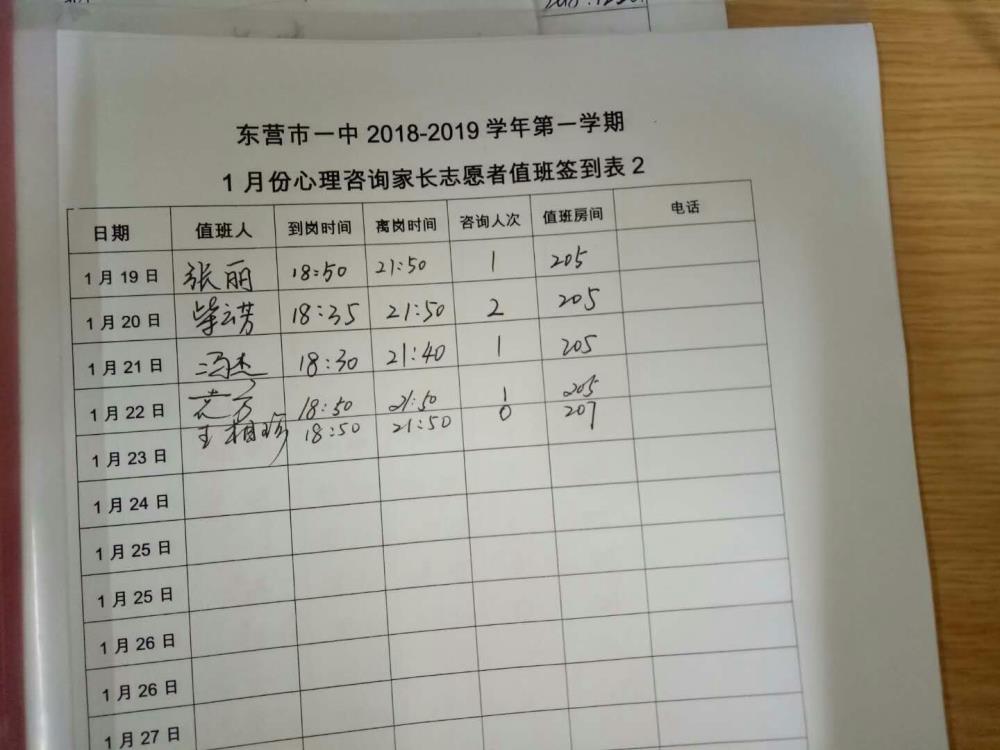 东营市一中 2018-2019 学年第一学期
1 月份心理咨询家长志愿者值班签到表 2
日期 值班人 到岗时间 离岗时间 咨询人次 值班房间 电话
1 月 19 日 张丽 18:50 21:50 1 205
1 月 20 日 18:35 21:50 2 205
1 月 21 日 冯杰 18:30 21:40 1 205
1 月 22 日 18:50 21:50 1 205
18:50 21:50 0 207
1 月 23 日
1 月 24 日
1 月 25 日
1 月 25 日
1 月 26 日
1 月 26 日
1 月 27 日